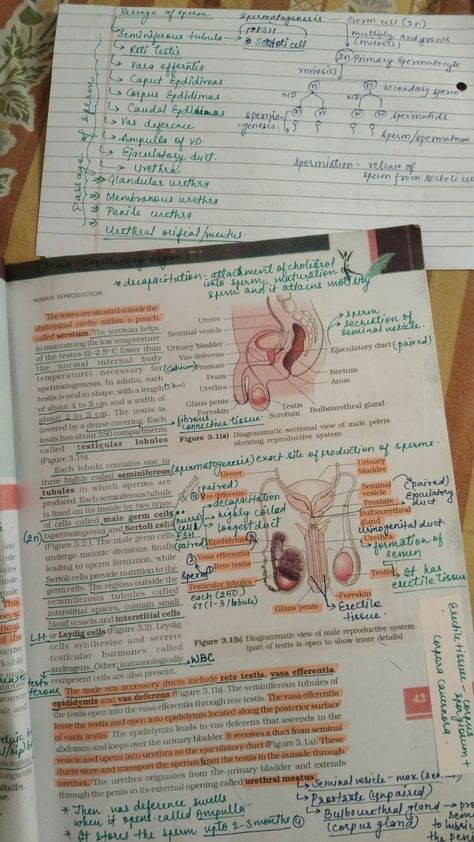 Passage of sperm
Seminiferous tubule
Reti testis
Vasa efferntia
Caput Epdidimas
Corpus Epdidimas
Caudal Epdidimas
Vas deference
Ampulla of VD
Ejaculatory duct
Urethra
Glandular urethra
Membranous urethra
Penile urethra
Urethral orifical/meatus
Passage of sperm
Spermatogenesis
Germ cell (2n)
FSH
Sertoli cell
multiply and grows
(mitosis)
2n Primary spermatocyte
meiosis
n n secondary sperm
n n n n spermatids
spermio-
genesis
Sperm/spermatozoa
Spermiation - release of
sperm from sertoli cell
(copulatory organ)
* decapacitation - attachment of cholestrol
unto sperm, maturation of
sperm and it attains motility
HUMAN REPRODUCTION
The testes are situated outside the
abdominal cavity within a pouch
called scrotum. The scrotum helps
in maintaining the low temperature
of the testes (2–2.5° C lower than
the normal internal body
temperature) necessary for
spermatogenesis. In adults, each
testis is oval in shape, with a length
of about 4 to 5 cm and a width of
about 2 to 3 cm. The testis is
covered by a dense covering. Each
testis has about 250 compartments
called testicular lobules
(Figure 3.1b).
Each lobule contains one to
three highly coiled seminiferous
tubules in which sperms are
produced. Each seminiferous tubule
is lined on its inside by two types
of cells called male germ cells
(spermatogonia) and Sertoli cells
(Figure 3.2). The male germ cells
undergo meiotic divisions finally
leading to sperm formation, while
Sertoli cells provide nutrition to the
germ cells. The regions outside the
seminiferous tubules called
interstitial spaces, contain small
blood vessels and interstitial cells
or Leydig cells (Figure 3.2). Leydig
cells synthesise and secrete
testicular hormones called
androgens. Other immunologically
competent cells are also present.
Ureter
Seminal vesicle
Urinary bladder
Vas deferens
Prostate
Penis
Urethra
Glans penis
Foreskin
Testis
Scrotum
Bulbourethral gland
Ejaculatory duct
Rectum
Anus
sperm
secretion of
seminal vesicle
(paired)
fibrous
connective tissue
Figure 3.1(a) Diagrammatic sectional view of male pelvis
showing reproductive system
(spermatogenesis) exact site of production of sperms
Ureter
(paired)
Vas deferens
decapacitation
highly coiled
longest duct
Epididymis
Vasa efferentia
Rete testis
Testicular lobules
each (250)
ST (1-3/lobule)
(2n)
FSH
(paired)
sperm
Urinary
bladder
Seminal
vesicle
Prostate
Bulbourethral
gland
Urethra
Testis
Foreskin
Glans penis
(paired)
Ejaculatory
duct
Urinogenital duct
formation of
semen
It has
erectile tissue
Erectile
tissue
Figure 3.1(b) Diagrammatic view of male reproductive system
(part of testis is open to show inner details)
LH
testo
terone
WBC
Erectile tissue - corpus
spongiosum +
corpora cavernosa
The male sex accessory ducts include rete testis, vasa efferentia,
epididymis and vas deferens (Figure 3.1b). The seminiferous tubules of
the testis open into the vasa efferentia through rete testis. The vasa efferentia
leave the testis and open into epididymis located along the posterior surface
of each testis. The epididymis leads to vas deferens that ascends to the
abdomen and loops over the urinary bladder. It receives a duct from seminal
vesicle and opens into urethra as the ejaculatory duct (Figure 3.1a). These
ducts store and transport the sperms from the testis to the outside through
urethra. The urethra originates from the urinary bladder and extends
through the penis to its external opening called urethral meatus.
43
* Then vas deference swells
when it open called Ampulla
* It stores the sperm upto 2-3 months
Seminal vesicle - max
Prostrate (unpaired)
Bulbourethral gland
(corpus gland)